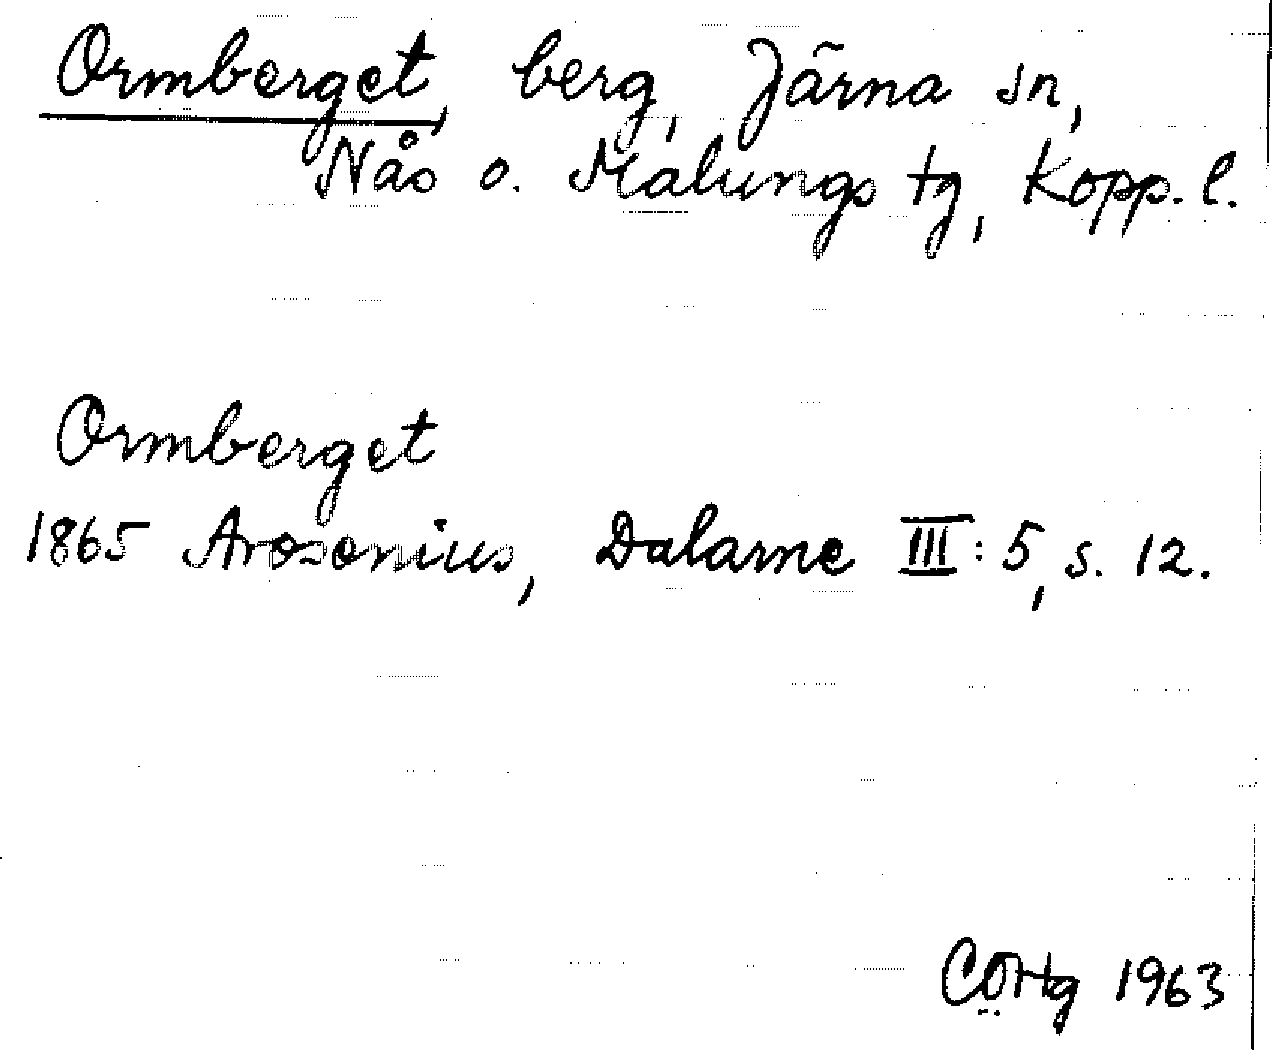 Ormberget, berg, Järna sn,
Nås o. Malungs tg, Kopp. l.
Ormberget
1865 Arosenius, Dalarne III: 5, s. 12.
CÖHg 1963